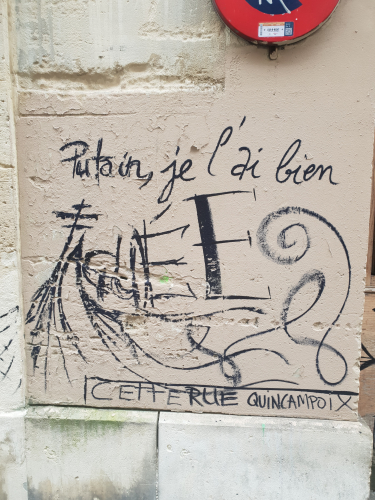 Putain, je l'ai bien
CETTE RUE QUINCAMPOIX